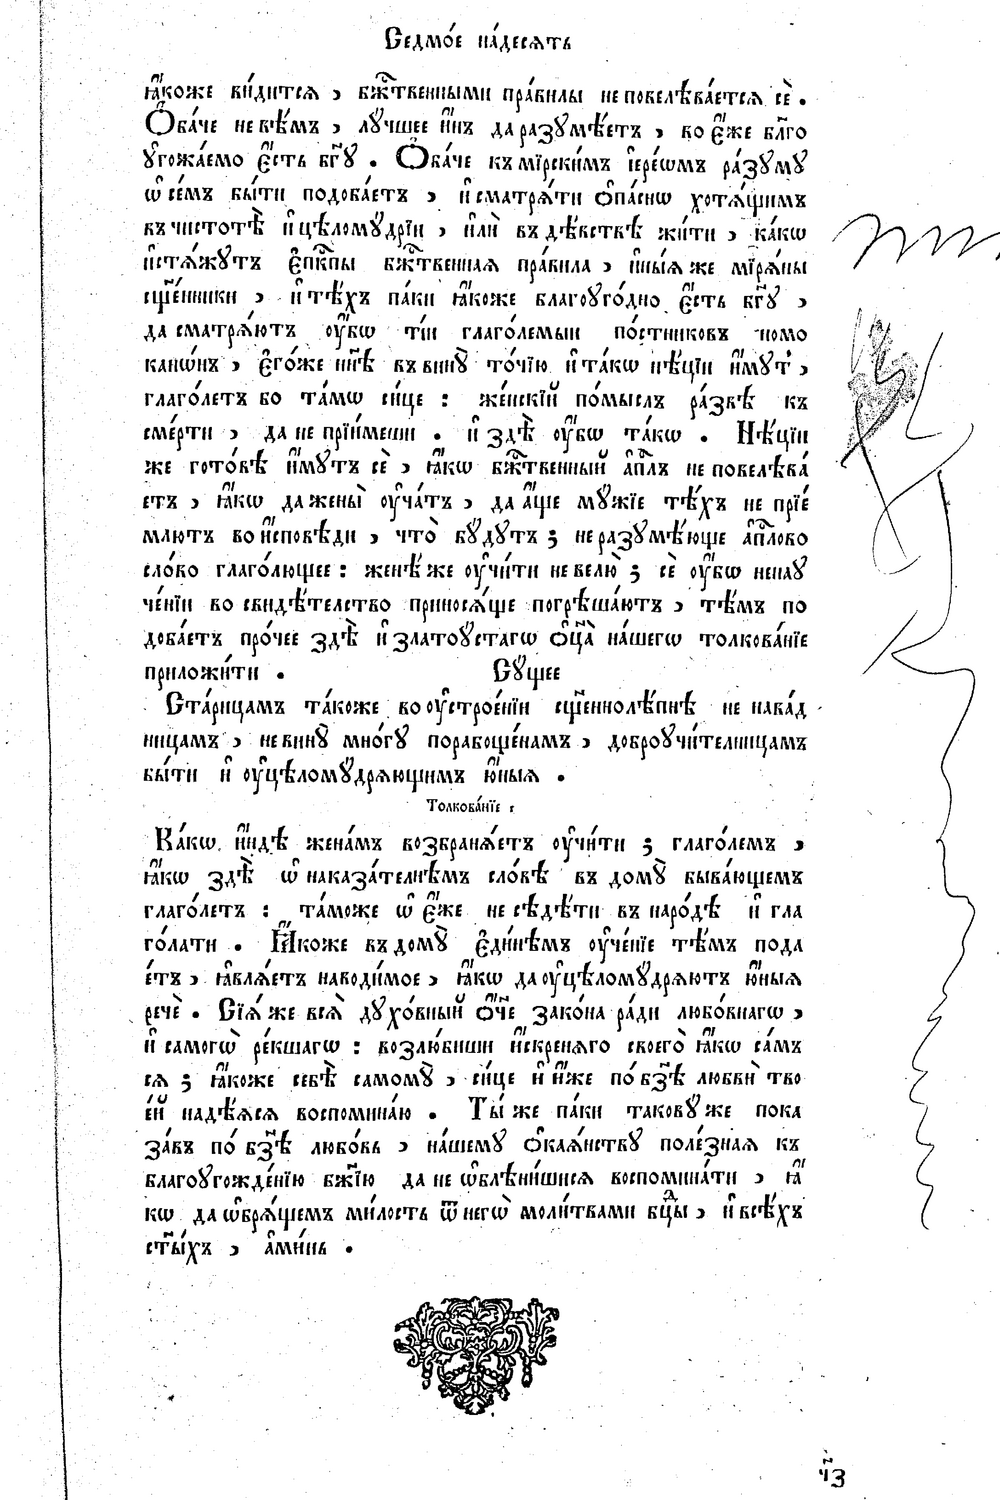 Седмо́е на́десѧть
ꙗ҆́коже ви́дитсѧ , бж҃твенными пра́вилы не повелѣва́етсѧ сѐ .
Ѻ҆ба́че не вѣ́мъ , лꙋ́чшее и҆́нъ да разꙋмѣ́етъ , во є҆́же бл҃го
ꙋгожа́емо є҆́сть бг҃ꙋ . Ѻ҆ба́че къ мїрски̑мъ і҆ере́ѡмъ ра́зꙋмꙋ
ѡ҆ се́мъ бы́ти подоба́етъ , и҆ сматрѧ́ти ѻ҆па́снѡ хотѧ́щимъ
въ чистотѣ̀ и҆ цѣломꙋ́дрїи , и҆лѝ въ дѣ́вствѣ жи́ти , ка́кѡ
и҆стѧ́жꙋтъ є҆пк҃пы бж҃твенная пра́вила , и҆ны́ѧ же мїрѧ́ны
сщ҃е́нники , и҆ тѣ́хъ па́ки ꙗ҆́коже благоꙋго́дно є҆́сть бг҃ꙋ ,
да сматрѧ́ютъ ᲂу҆́бѡ ті́и глаго́лемыи по́стниковъ номо
кано́нъ , є҆го́же нн҃ѣ въ винꙋ̀ то́чїю и҆ та́кѡ нѣ́цїи и҆́мꙋт̾ ,
глаго́летъ бо та́мѡ си́це : же́нскїй по́мыслъ ра́звѣ къ
сме́рти , да не прїи́меши . и҆ здѣ̀ ᲂу҆́бѡ та́кѡ . Нѣ́цїи
же гото́вѣ и҆́мꙋтъ сѐ , ꙗ҆́кѡ бж҃твенный а҆п҃лъ не повелѣва́
етъ , ꙗ҆́кѡ да жены̀ ᲂу҆ча́тъ , да а҆́ще мꙋ́жїе тѣ́хъ не прїе́
млютъ во и҆́сповѣди , что̀ бꙋ́дꙋтъ ; не разꙋмѣ́юще а҆п҃лово
сло́во глаго́лющее : женѣ́ же ᲂу҆чи́ти не велю̀ ; сѐ ᲂу҆́бѡ ненаꙋ
че́нїи во свидѣ́телство приносѧ́ще погрѣша́ютъ , тѣ́мъ по
доба́етъ про́чее здѣ̀ и҆ златоꙋ́стагѡ ѻ҆ц҃а̀ на́шегѡ толкова́нїе
приложи́ти . Сꙋ́щее
Ста́рицамъ та́коже во ᲂу҆строе́нїи сщ҃еннолѣ́пнѣ не нава́д
ницамъ , не винꙋ̀ мно́гꙋ порабоще́намъ , доброꙋчи́телницамъ
бы́ти и҆ ᲂу҆цѣломꙋ́дряющимъ ю҆́ныѧ .
Толкова́нїе :
Ка́кѡ и҆́ндѣ жена́мъ возбранѧ́етъ ᲂу҆чи́ти ; глаго́лемъ ,
ꙗ҆́кѡ здѣ̀ ѡ҆ наказа́телнѣмъ сло́вѣ въ домꙋ̀ быва́ющемъ
глаго́летъ : та́може ѡ҆ є҆́же не сѣдѣ́ти въ наро́дѣ и҆ гла
го́лати . Ꙗ҆́коже въ домꙋ̀ є҆ди́нѣмъ ᲂу҆че́нїе тѣ́мъ пода
е́тъ , ꙗ҆влѧ́етъ наводи́мое , ꙗ҆́кѡ да ᲂу҆цѣломꙋ́дряютъ ю҆́ныѧ
речѐ . Сїѧ́ же всѧ̀ дꙋхо́вный ѻ҆́ч҃е зако́на ра́ди любо́внагѡ ,
и҆ самогѡ̀ ре́кшагѡ : возлю́биши и҆́скреняго своего̀ ꙗ҆́кѡ са́мъ
сѧ ; ꙗ҆́коже себѣ̀ самомꙋ̀ , си́це и҆ и҆́же по́ бз҃ѣ любвѝ тво
е́й надѣ́ясѧ воспомина́ю . Ты́ же па́ки таковꙋ́ же пока
за́въ по́ бз҃ѣ любо́вь , на́шемꙋ ѻ҆каѧ́нствꙋ поле́зная къ
благоꙋгожде́нїю бж҃їю да не ѡ҆блѣни́шисѧ воспомина́ти , ꙗ҆́
кѡ да ѡ҆брѧ́щемъ ми́лость ѿ негѡ̀ моли́твами бц҃ды , и҆ всѣ́хъ
ст҃ы́хъ , а҆ми́нь .
ч҃з